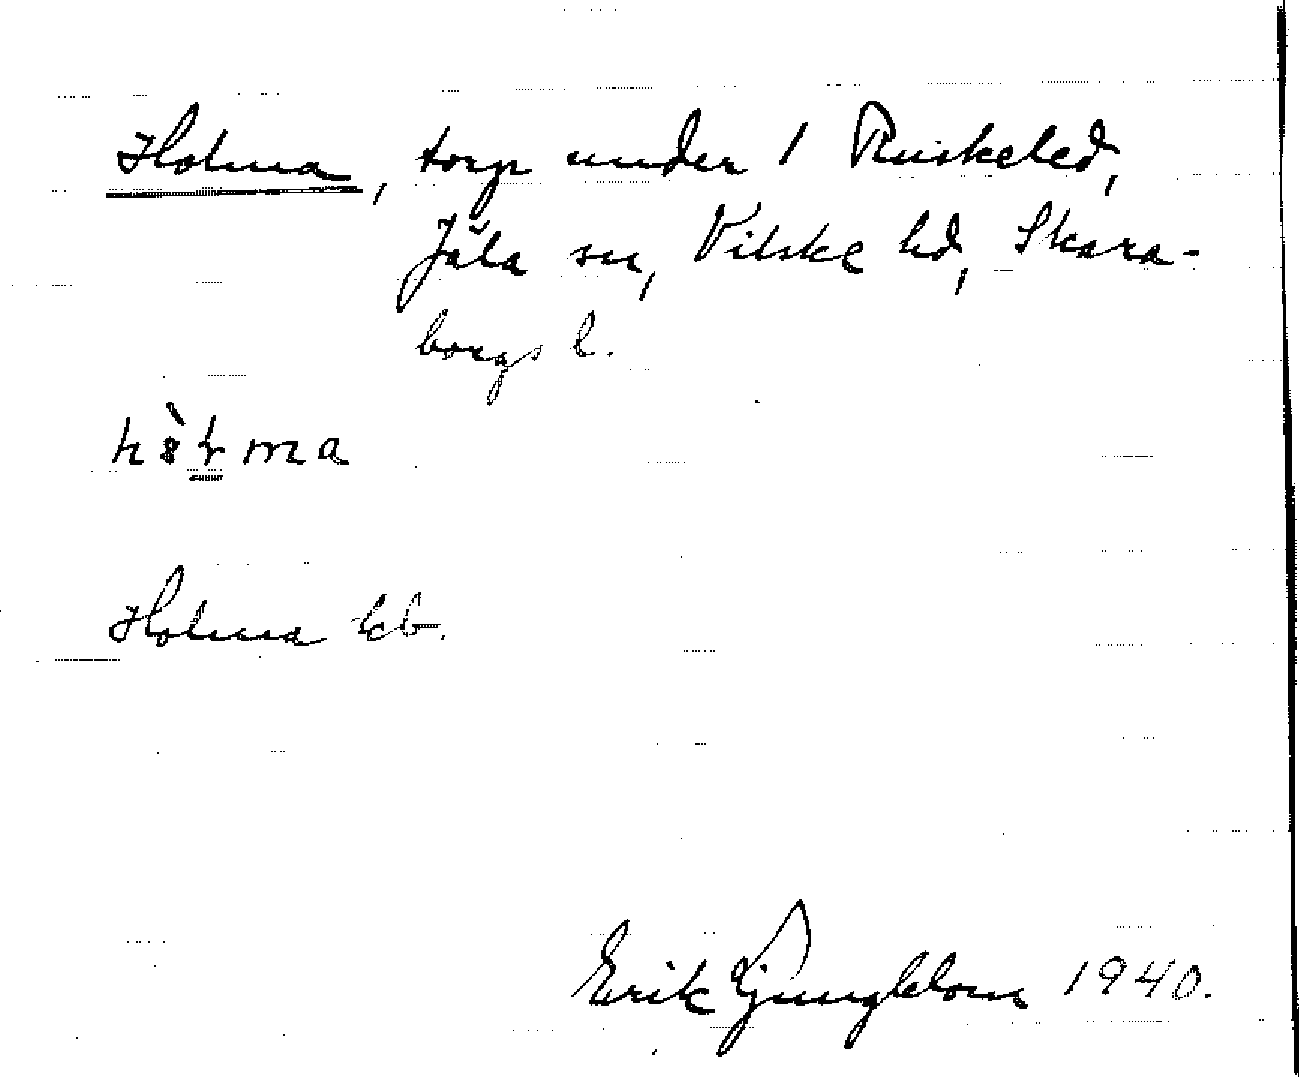 Holma, torp under 1 Ruskeled,
Jäla sn, Vilske hd, Skara-
borgs l.
Holma kb.
Erik Ljungblom 1940.